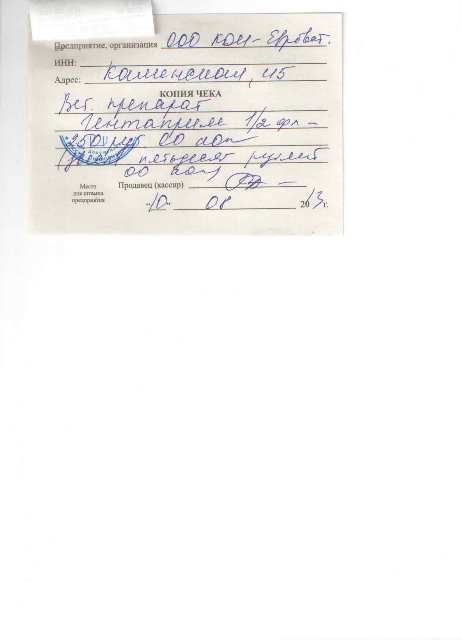 Предприятие, организация ООО Ком-Евровет.
ИНН:
Адрес: Каменская, 45
КОПИЯ ЧЕКА
Вет. препарат
Гентаприм 1/2 фл –
250 руб 00 коп
пятьдесят рублей
00 коп)
Место для штампа предприятия
Продавец (кассир)
"10" 08 2013г.